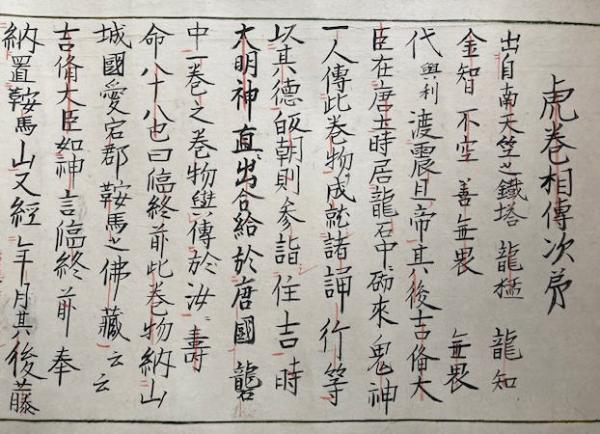 虎卷相傳次㐧
出自南天竺之鐵塔 龍猛 龍知
金智 不空 善無畏 無畏
代與利渡震旦帝其後吉備大
臣在唐土時居龍石中砌來鬼神
一人傳此卷物成就諸誦行等
以其德皈朝則参詣住吉時
大明神直出合給於唐國礱
中一卷之卷物與傳於汝壽
命八十八也曰臨終前此卷物納山
城國愛宕郡鞍馬之佛藏云云
吉備大臣如神言臨終前奉
納置鞍馬山又經年月其後藤